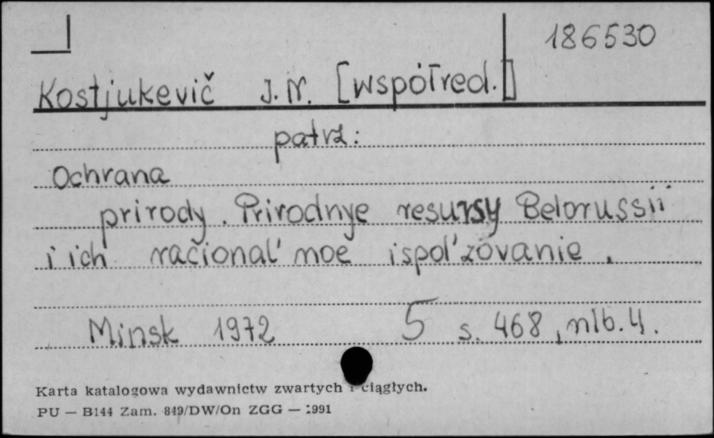 186530
Kostjukevič J. N. [współred.]
patrz:
Ochrana
prirody. Prirodnye resursy Belorussii
i ich racional'noe ispol'zovanie.
Minsk 1972 5 s. 468, nlb. 4.
Karta katalogowa wydawnictw zwartych i ciągłych.
PU — B144 Zam. 849/DW/On ZGG — 1991